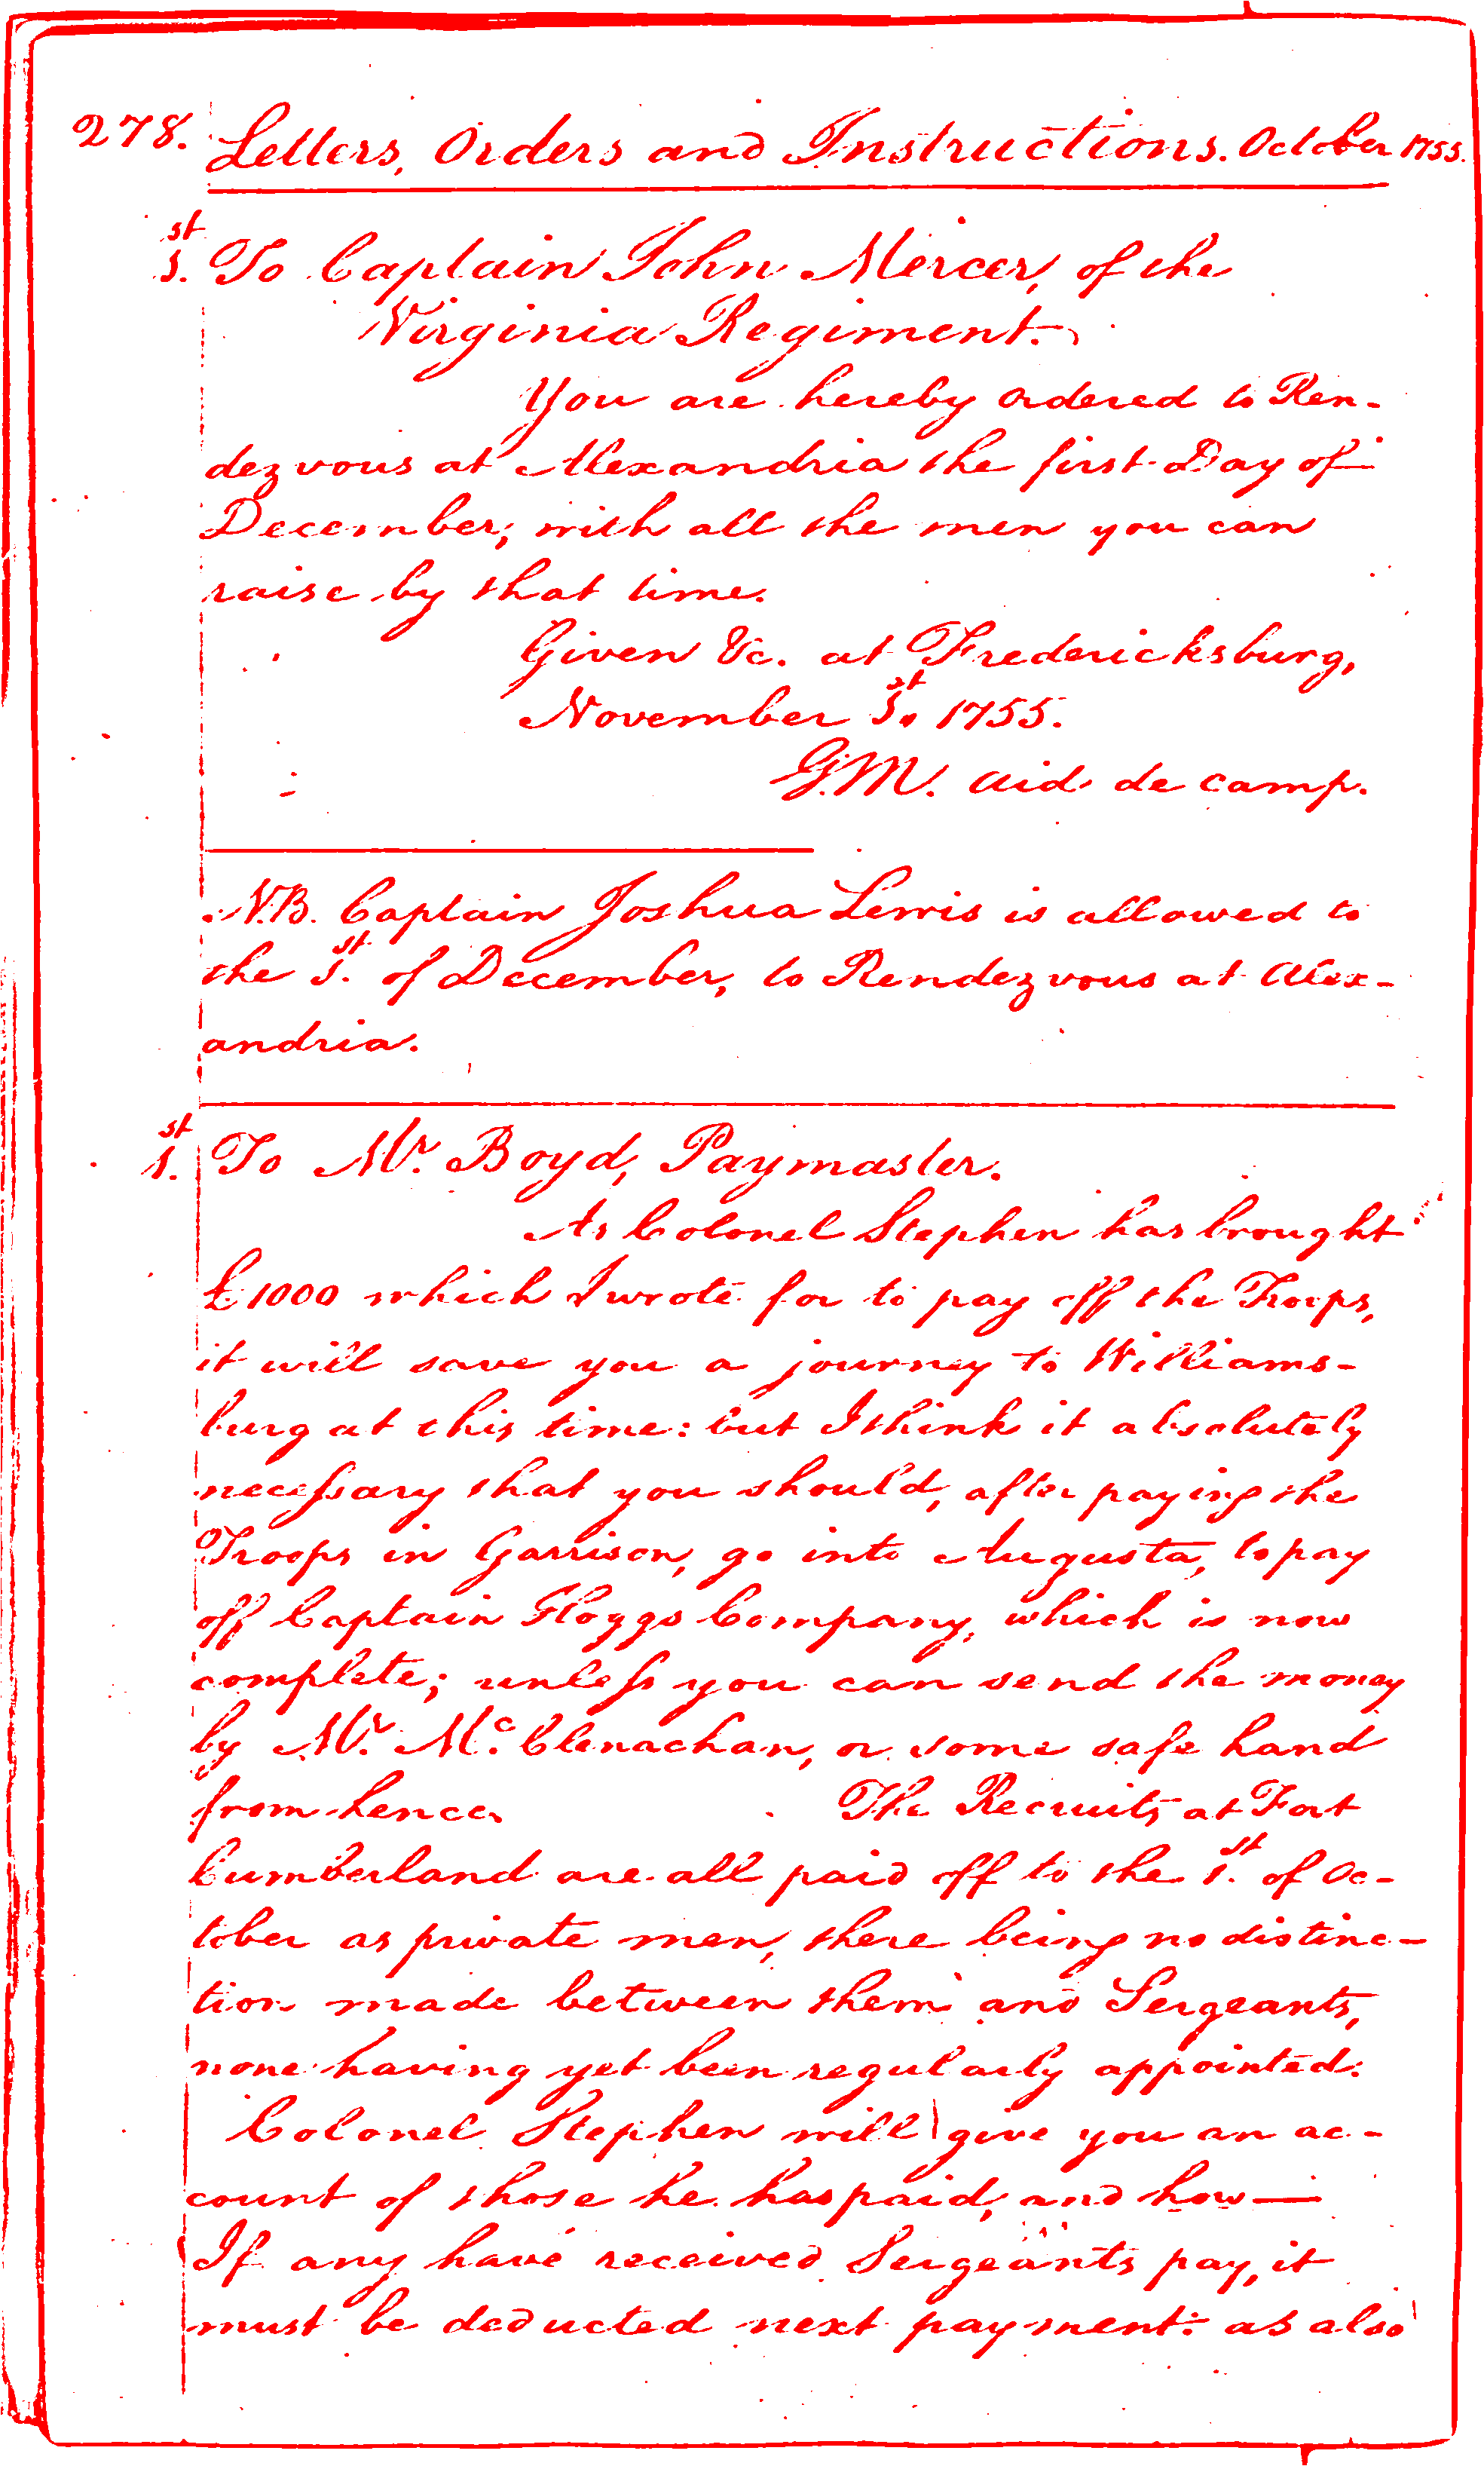 278. Letters, Orders and Instructions. October 1755.
1st. To Captain John Mercer, of the
Virginia Regiment.
You are hereby ordered to Ren-
dezvous at Alexandria the first Day of
December; with all the men you can
raise by that time.
Given &c. at Fredericksburg,
November 1st. 1755.
G.M. aid de camp.
N.B. Captain Joshua Lewis is allowed to
the 1st. of December, to Rendezvous at Alex-
andria.
1st. To Mr. Boyd, Paymaster.
As Colonel Stephen has brought
£1000 which I wrote for to pay off the Troops,
it will save you a journey to Williams-
burg at this time: but I think it absolutely
necessary that you should, after paying the
Troops in Garrison, go into Augusta, to pay
off Captain Hoggs Company, which is now
complete; unless you can send the money
by Mr. Mc. Clenachan, or some safe hand
from hence. The Recruits at Fort
Cumberland are all paid off to the 1st. of Oc-
tober as private men, there being no distinc-
tion made between them and Sergeants,
none having yet been regularly appointed.
Colonel Stephen will give you an ac-
count of those he has paid, and how—
If any have received Sergeants pay, it
must be deducted next payment: as also